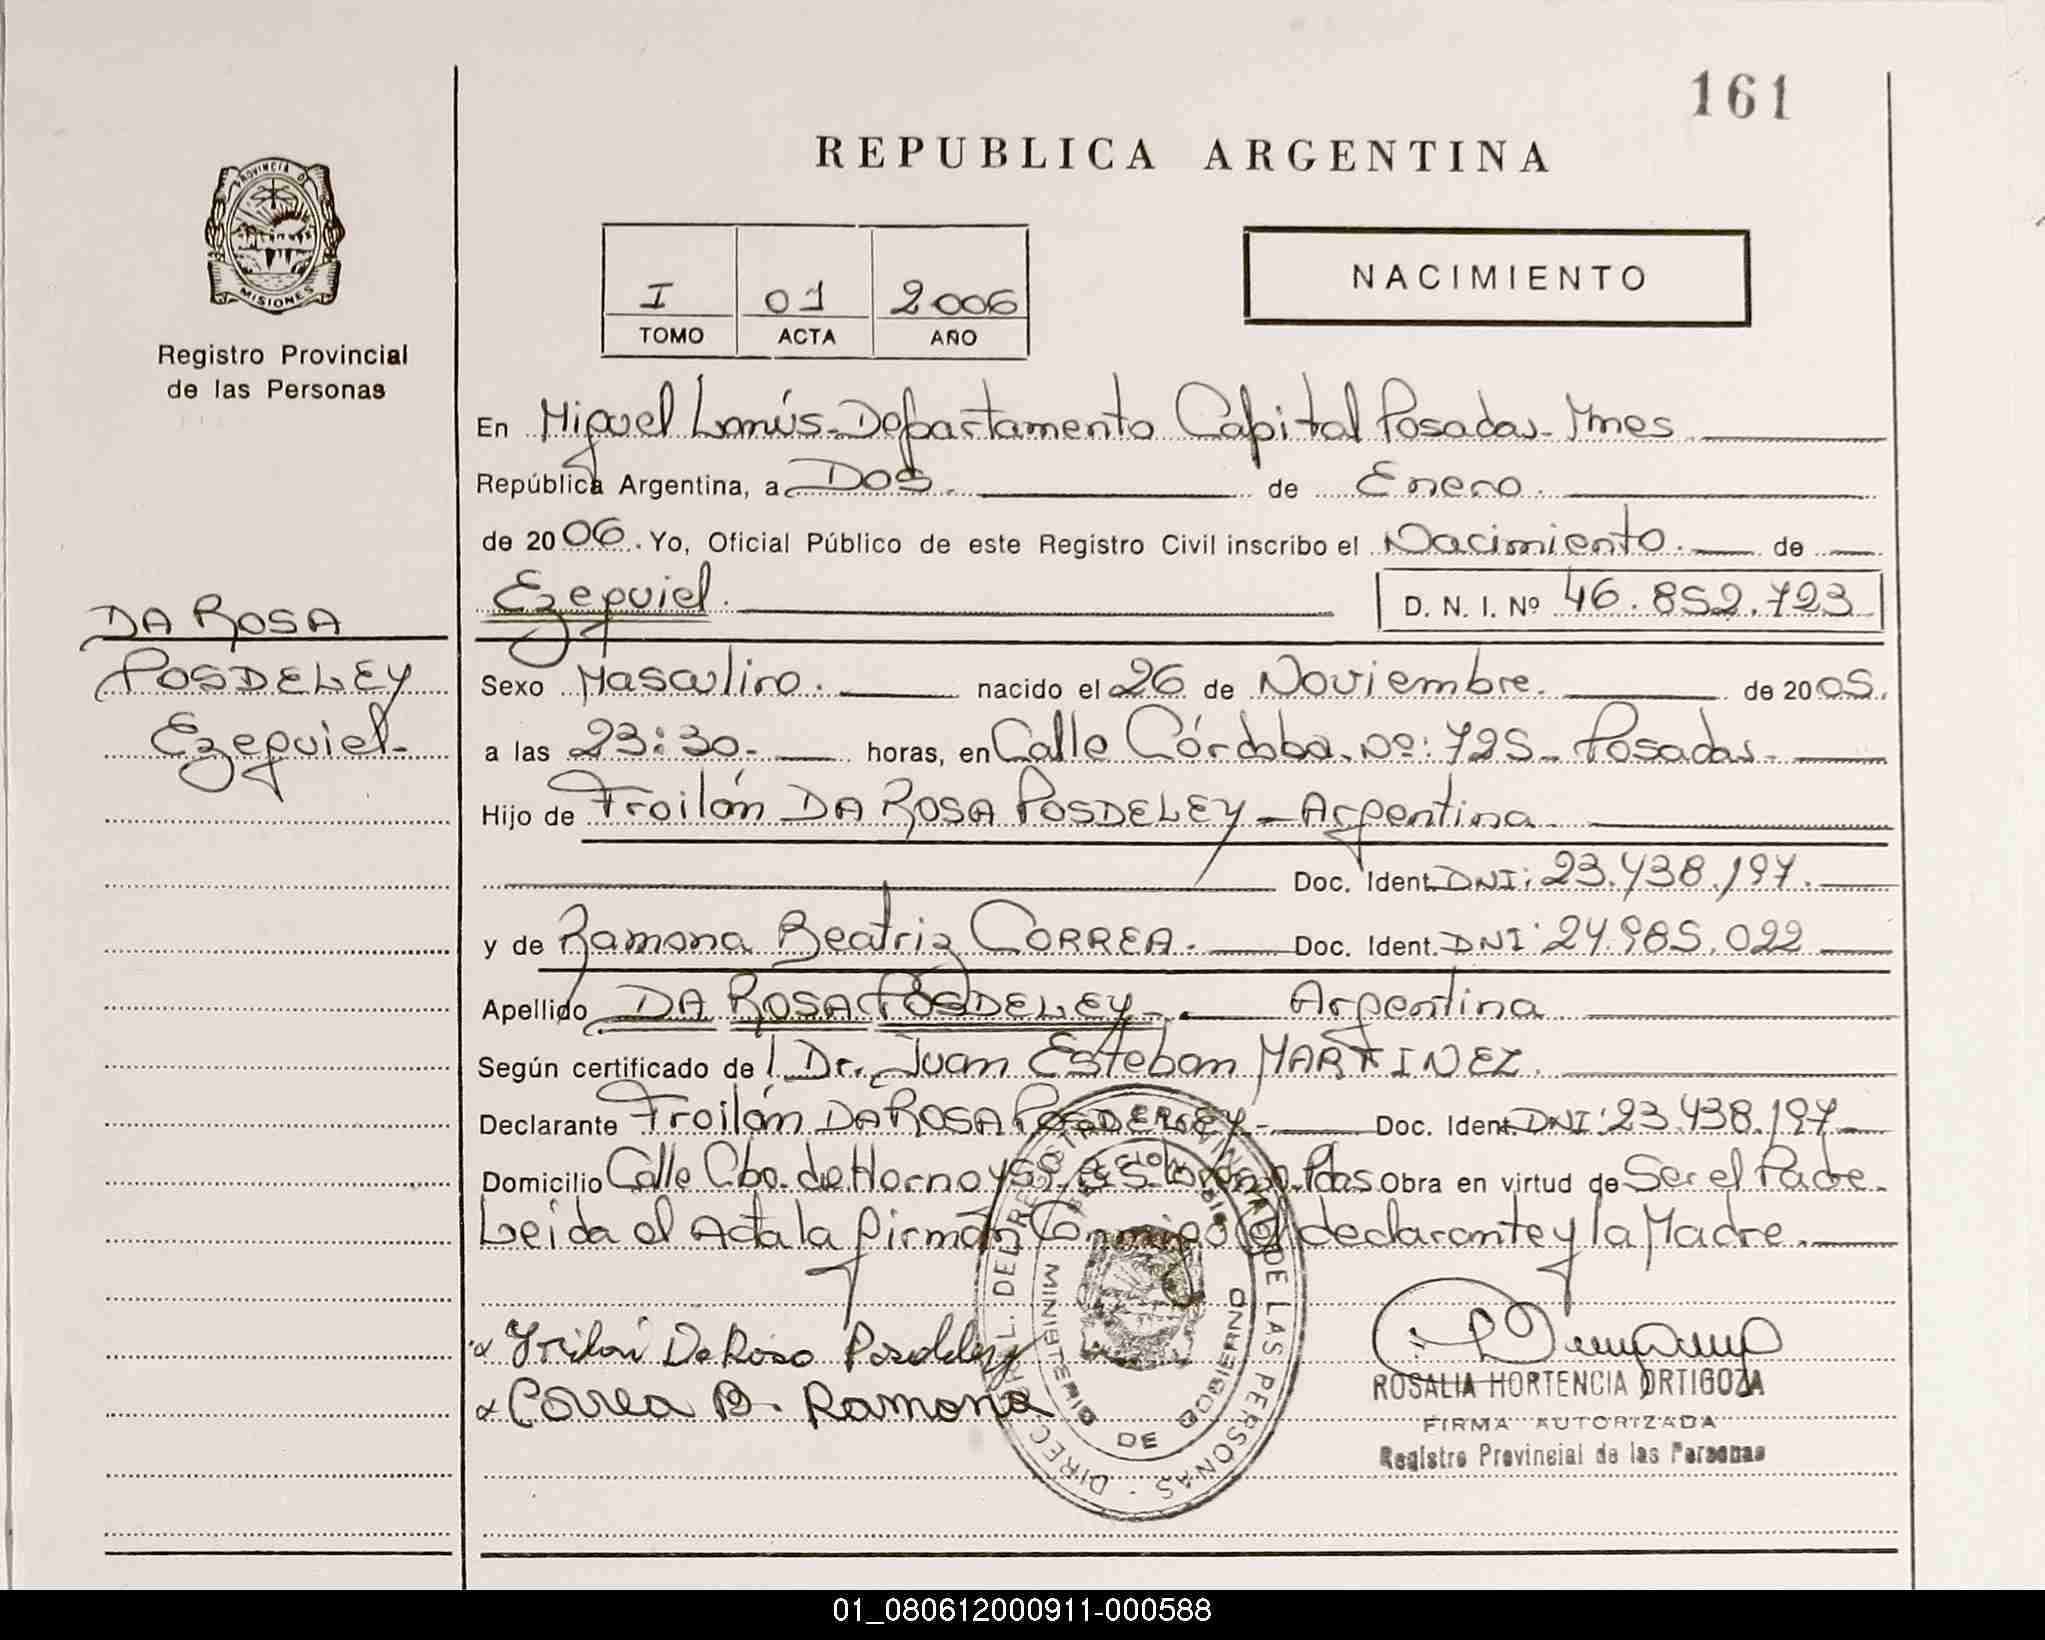 161
REPUBLICA ARGENTINA
PROVINCIA DE
MISIONES
Registro Provincial
de las Personas
I 01 2006
TOMO ACTA AÑO
NACIMIENTO
En Miguel Lanús-Departamento Capital Posadas-Mnes
República Argentina, a Dos. de Enero.
de 2006. Yo, Oficial Público de este Registro Civil inscribo el Nacimiento. de
Ezequiel. D. N. I. Nº 46.852.723
DA ROSA
POSDELEY
Ezequiel-
Sexo Masculino. nacido el 26 de Noviembre. de 2005.
a las 23:30. horas, en Calle Córdoba. Nº: 725- Posadas-
Hijo de Froilán DA ROSA POSDELEY - Argentina
Doc. Ident. DNI: 23.438.197.
y de Ramona Beatriz CORREA. Doc. Ident. DNI: 24.985.022
Apellido DA ROSA POSDELEY-. Argentina
Según certificado de l Dr. Juan Esteban MARTINEZ.
Declarante Froilán DA ROSA POSDELEY- Doc. Ident. DNI: 23.438.197
Domicilio Calle Cbo. de Hornoy Pdas Obra en virtud de Ser el Padre-
Leida el Acta la firmán Conmigo el declarante y la Madre.
Froilan Da Rosa Posdeley
Correa B. Ramona
DIREC. GRAL. DEL REGISTRO PROVINCIAL DE LAS PERSONAS
MINISTERIO DE GOBIERNO
ROSALIA HORTENCIA ORTIGOZA
FIRMA AUTORIZADA
Registro Provincial de las Personas
01_080612000911-000588